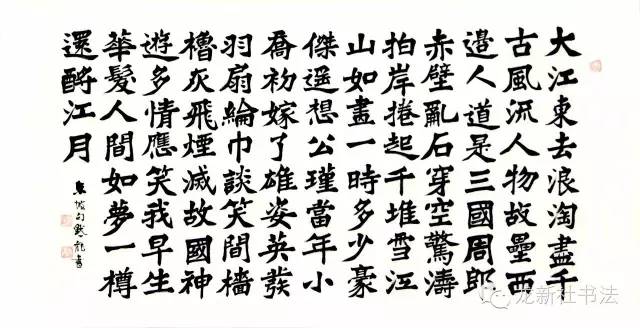 大江東去浪淘盡千
古風流人物故壘西
邉人道是三國周郎
赤壁亂石穿空驚濤
拍岸捲起千堆雪江
山如畫一時多少豪
傑遥想公瑾當年小
喬初嫁了雄姿英發
羽扇綸巾談笑間檣
櫓灰飛煙滅故國神
遊多情應笑我早生
華髮人間如夢一樽
還酹江月
東坡句龍書
龙新社书法